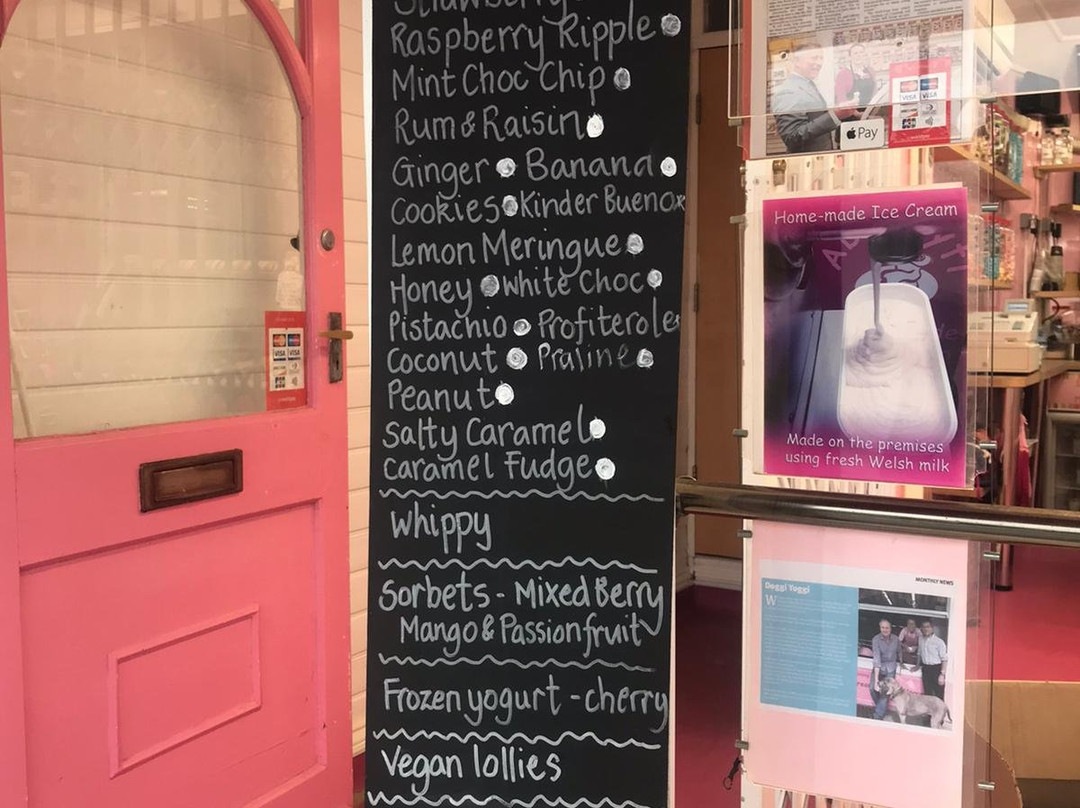 Strawberry
Raspberry Ripple
Mint Choc Chip
Rum & Raisin
Ginger Banana
Cookies Kinder Bueno
Lemon Meringue
Honey White Choc
Pistachio Profiterole
Coconut Praline
Peanut
Salty Caramel
Caramel Fudge
Whippy
Sorbets - Mixed Berry
Mango & Passionfruit
Frozen yogurt - cherry
Vegan lollies
VISA VISA
VISA VISA
Pay
Home-made Ice Cream
Made on the premises
using fresh Welsh milk
MONTHLY NEWS
Doggi Yoggi